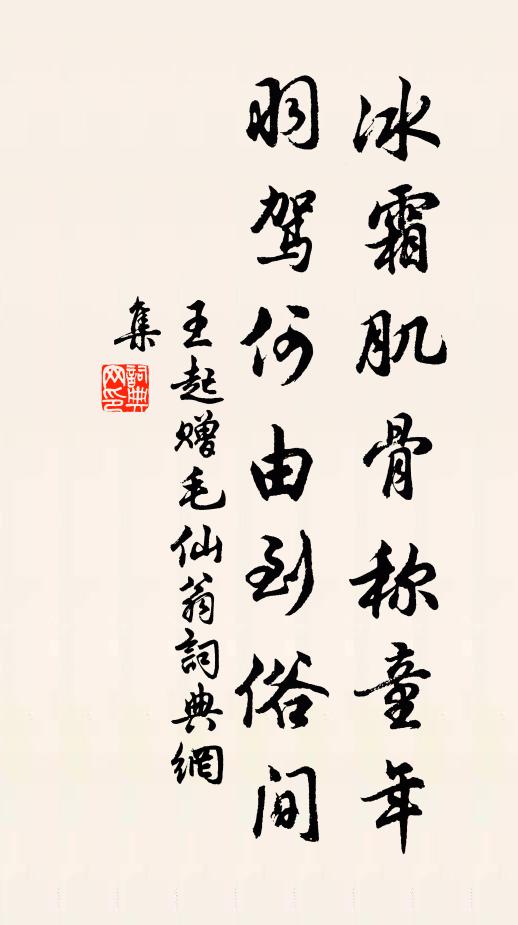 冰霜肌骨称童年
羽驾何由到俗间
王起赠毛仙翁詞典網
集
詞典
网印